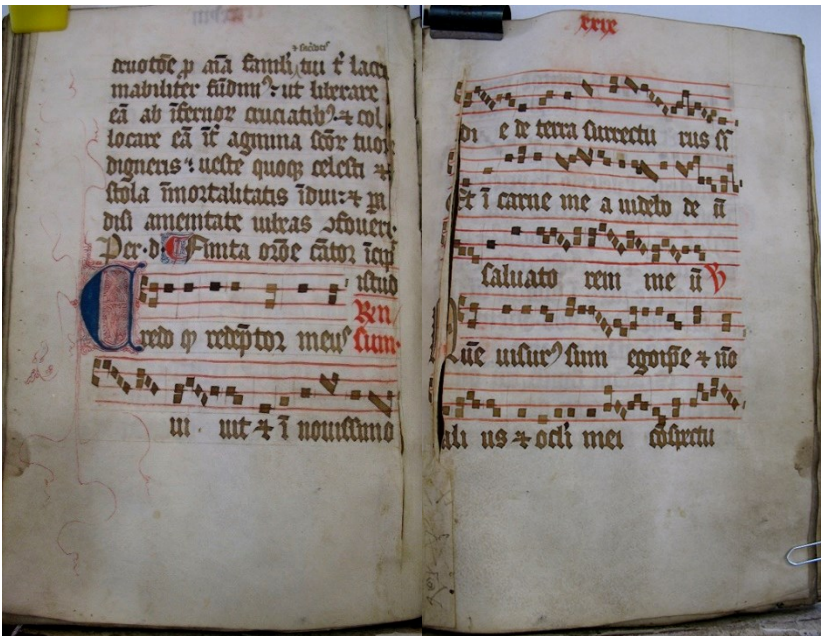 deuotõe p aĩa famuli tui t̃ lacri
mabiliter fũdim⁹: ut liberare
eã ab ĩfernor cruciatib⁹: ⁊ col
locare eã ĩt̃ agmina scõr tuor
digneris: ueste quoqꝫ celesti ⁊
stola ĩmortalitatis ĩdui: ⁊
disi ↄfoueri.
Per. d. Finita orõe cãtor ĩcip
istud
Ren
Credo ꝙ redẽptor meus sum.
ui uit ⁊ ĩ nouissimo
xxix
di e de terra surrectu rus sũ
Et ĩ carne me a uidebo de ũ
saluato rem me ũ ℣
Quẽ uisur⁹ sum ego ip̃e ⁊ nõ
ali us ⁊ ocl̃i mei cõspectu